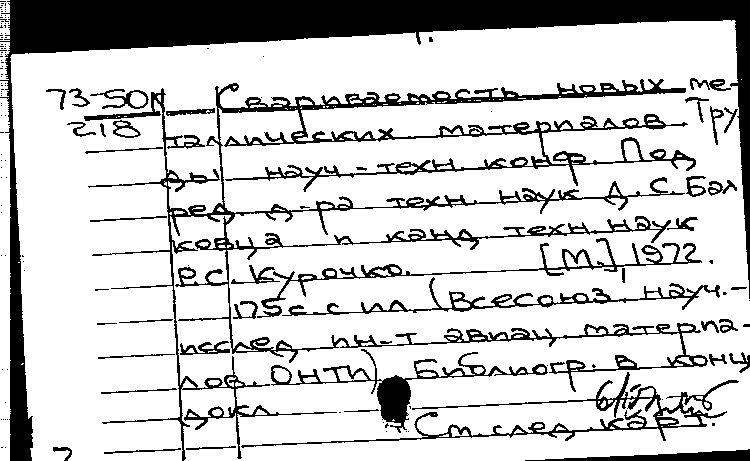 1.
73-50к Свариваемость новых ме-
218 таллических материалов. Тру
ды науч.-техн. конф. Под
ред. д-ра техн. наук Д.С. Бал
ковца и канд техн. наук
Р.С. Курочко. [М.], 1972.
175 с. с ил. (Всесоюз. науч.-
исслед ин-т авиац. материа-
лов. ОНТИ) Библиогр. в конц
докл.
См. след. карт.
7